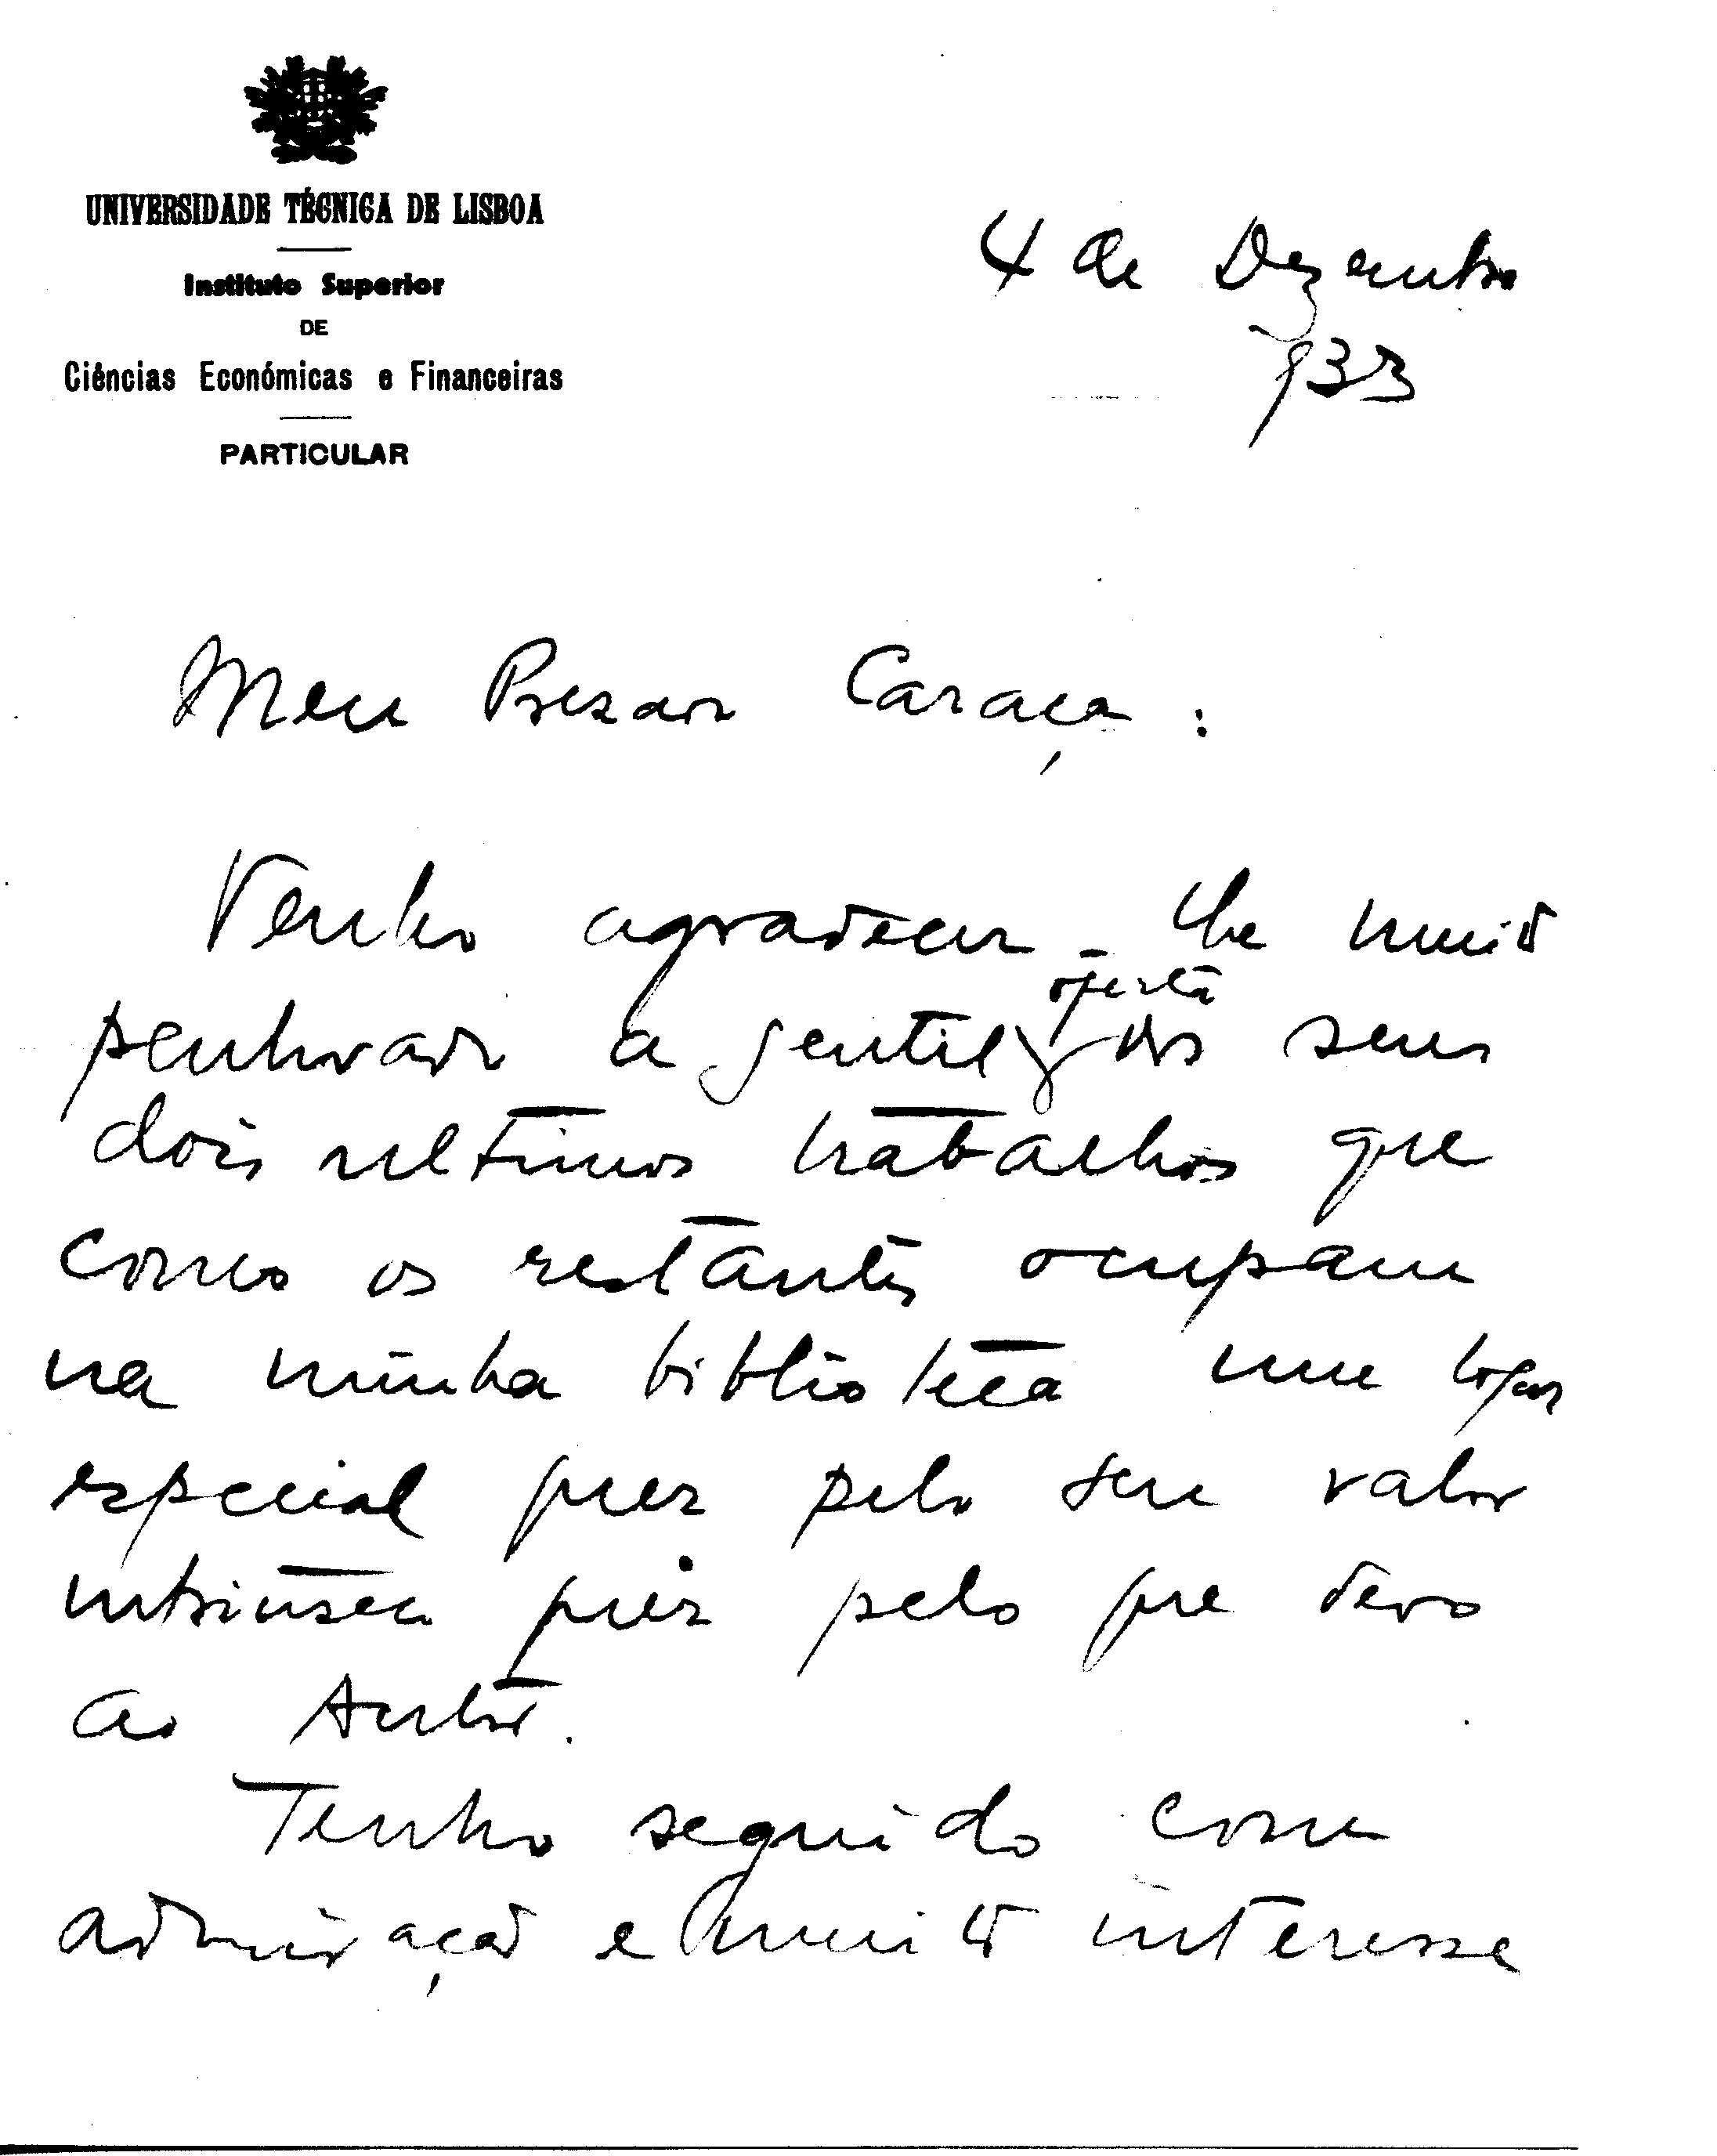 UNIVERSIDADE TÉCNICA DE LISBOA
Instituto Superior
DE
Ciências Económicas e Financeiras
PARTICULAR
4 de Dezembro
933
Meu Prezado Caraça:
Venho agradecer-lhe muito
penhorado a gentil oferta dos seus
dois ultimos trabalhos que
como os restantes ocupam
na minha biblioteca um logar
especial quer pelo seu valor
intrinseco quer pelo que devo
ao Autor.
Tenho seguido com
admiração e muito interesse